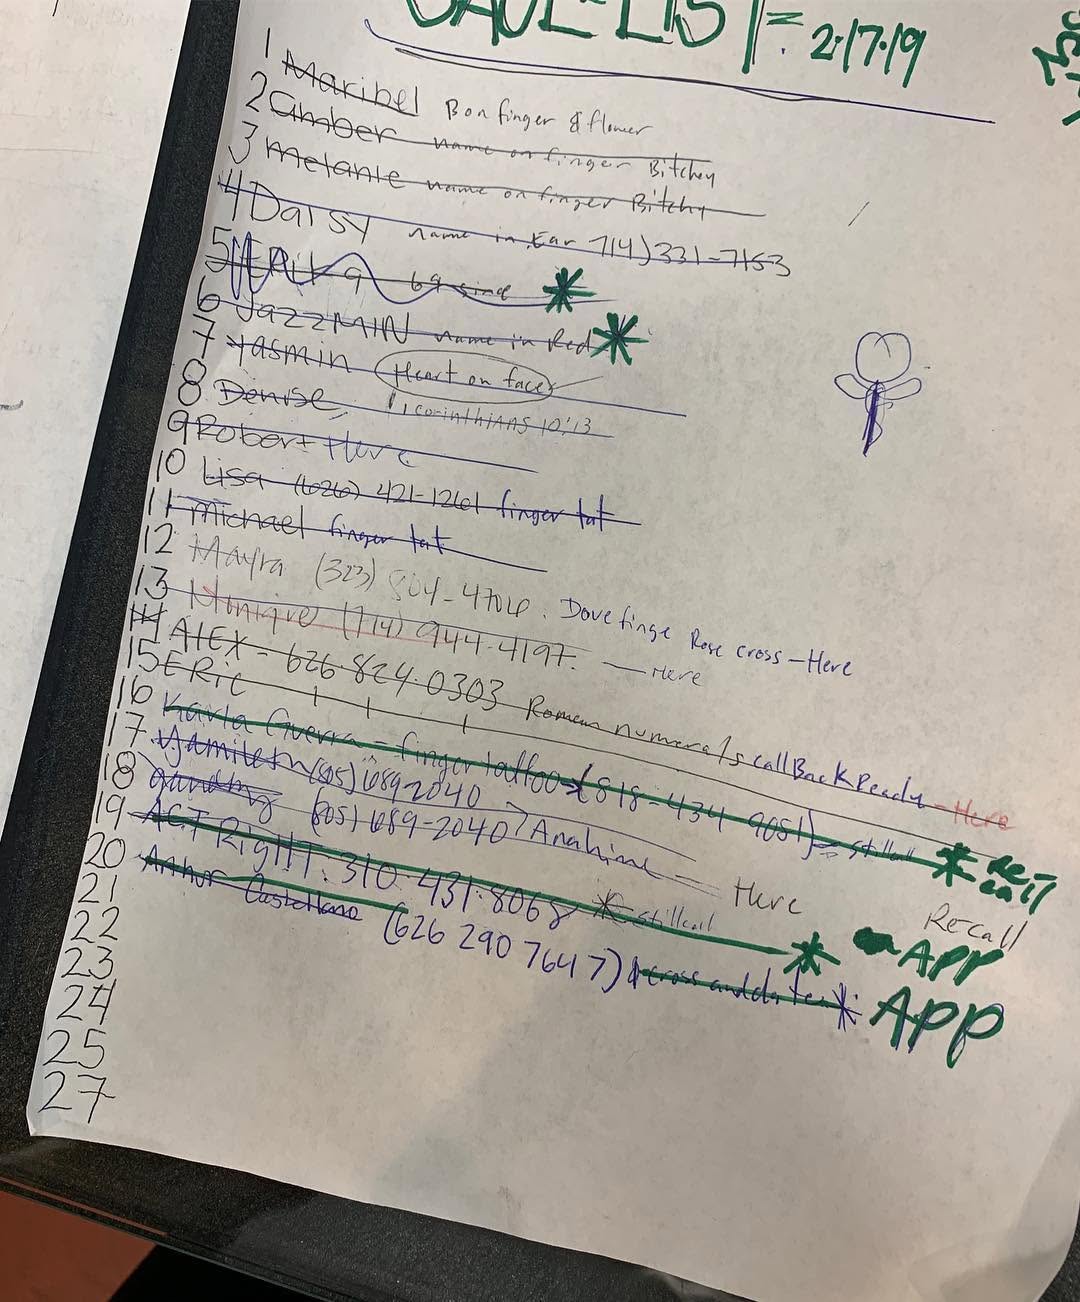 LIST 2.17.19
1 Maribel B on finger & flower
2 Amber name on finger Bitchey
3 Melanie name on finger Bitchy
4 Daisy name in Ear 714) 331-7153
5 Erika 69 since
6 JazzMIN name in Red
7 Yasmin Heart on face
8 Denise 1 corinthians 10:13
9 Robert Here
10 Lisa (626) 421-1261 finger tat
11 Michael finger tat
12 Mayra (323) 804-4704. Dove finge Rose cross - Here
13 Monique (714) 944-4197. — Here
14 AlEX - 626.824.0303 Roman numerals call Back Ready - Here
15 ERic
16 Karla Guerra - finger tattoo (818-434-9051) - still call RE call
17 Yamileth (805) 689-2040
18 (805) 689-2040 Anahime — Here
19 ACT RigHT: 310.431.8068 still call Recall APP
20 Arthur Castellano (626 290 7647) cross and date APP
21
22
23
24
25
27